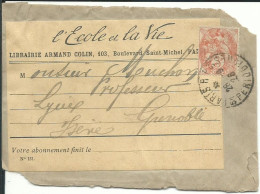 l'Ecole et la Vie
LIBRAIRIE ARMAND COLIN, 103, Boulevard Saint-Michel, PARIS
Monsieur
Professeur
Lycée
Isère Grenoble
Votre abonnement finit le
N° 10.